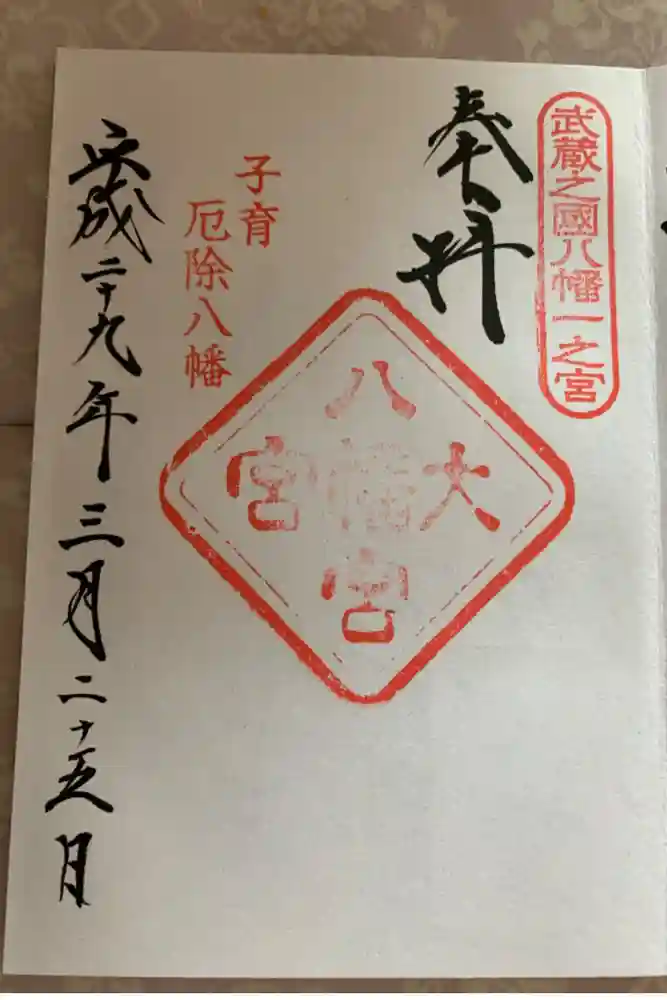 武蔵之國八幡一之宮
奉拝
子育
厄除八幡
大宮
八幡宮
平成二十九年三月二十五日